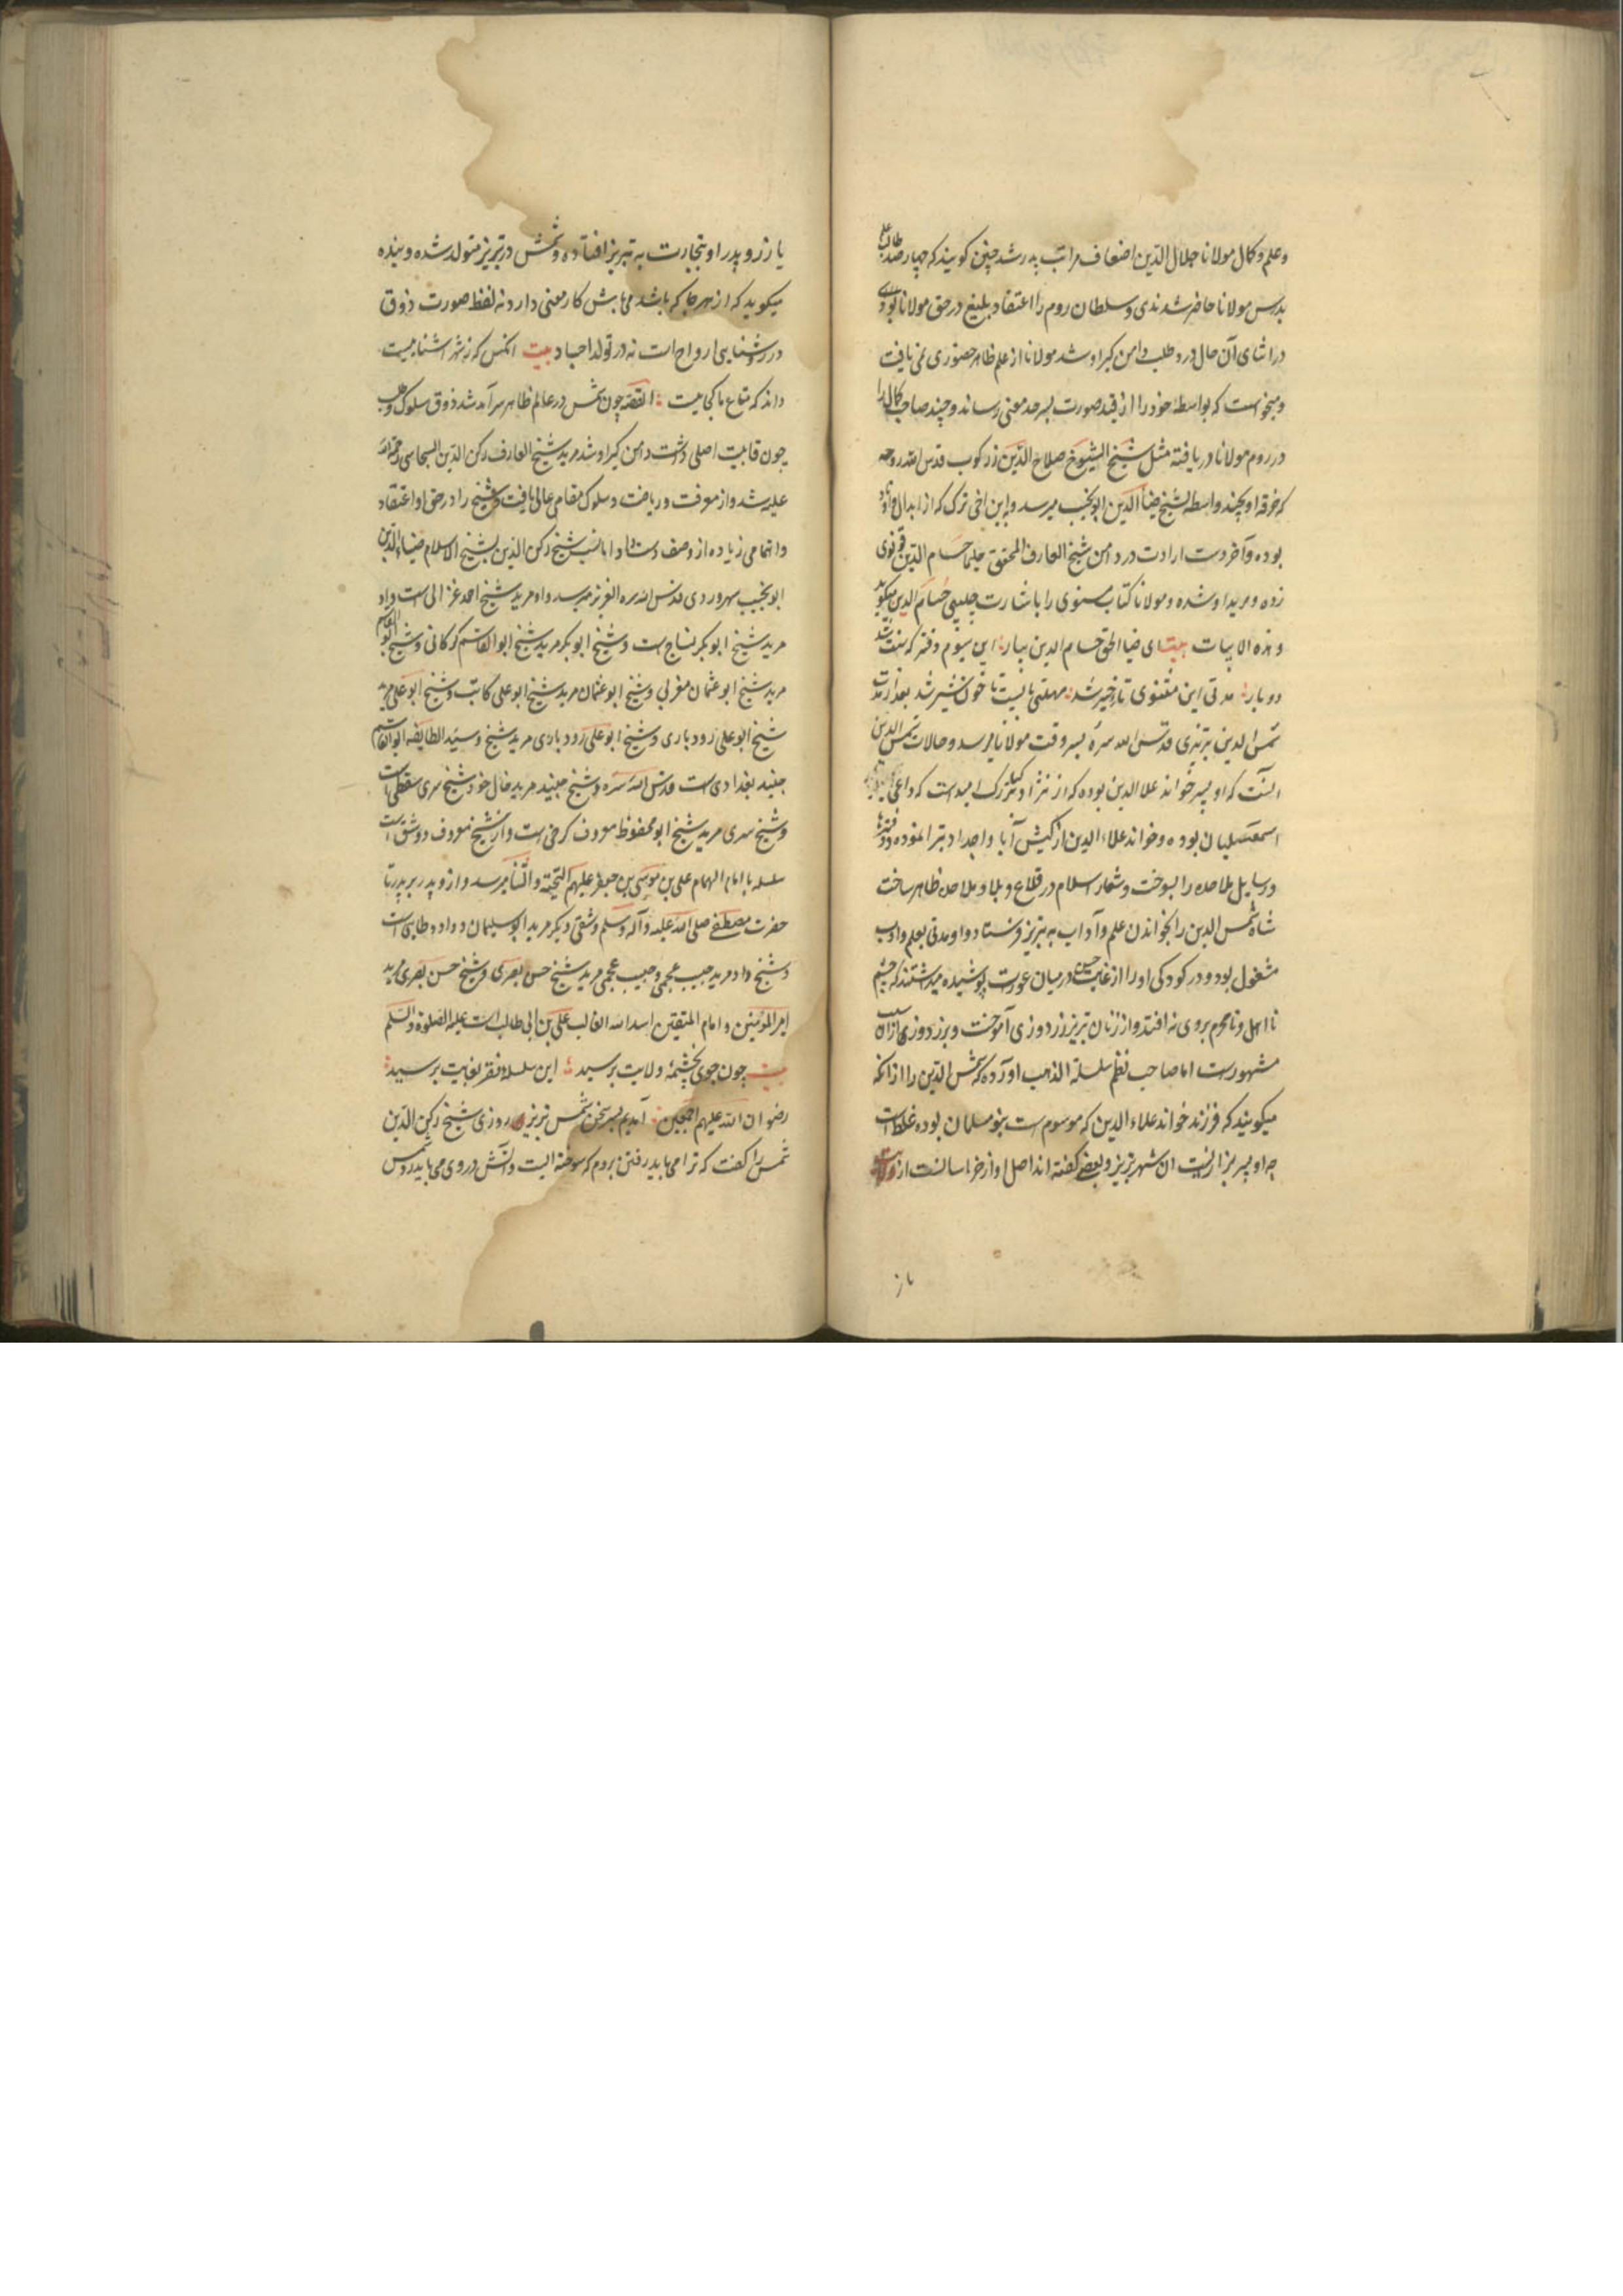 وعلم وکمال مولانا جلال الدین اضعاف مراتب پدر شد چنین کویند که چهار صد طالب علم
بدرس مولانا حاضر شدندی و سلطان روم را اعتقاد بلیغ در حق مولانا بودی
در اثنای آن حال درد طلب دامن کیر او شد مولانا از علم ظاهر حضوری نمی یافت
و میخواست که بواسطهٔ خود را از قید صورت بسرحد معنی رساند و چند صاحب کمال را
در روم مولانا دریافته مثل شیخ الشیوخ صلاح الدین زرکوب قدس الله روحه
که خرقه او بچند واسطه بشیخ ضیاالدین ابو نجیب میرسد و ابن اخی ترک که از ابدال و اوتاد
بوده و آخر دست ارادت در دامن شیخ العارف المحقق چلبی حسام الدین قونوی
زده و مرید او شده و مولانا کتاب مثنوی را باشارت چلبی حسام الدین میکوید
و هذه الابیات بیت ای ضیا الحق حسام الدین بیار این سیوم دفتر که سنت شد
دو بار مدتی این مثنوی تاخیر شد مهلتی بایست تا خون شیر شد بعد از مدت
شمس الدین تبریزی قدس الله سره بسر وقت مولانا میرسد و حالات شمس الدین
آنست که او پسر خواند علا الدین بوده که از نژاد کیا بزرک امیدست که داعی
اسمعیلیان بوده و خواند علاء الدین از کیش آبا و اجداد تبرا نموده و دفترها
و رسایل ملاحده را بسوخت و شعار اسلام در قلاع و بلاد ملاحده ظاهر ساخت
شاه شمس الدین را بخواندن علم و آداب به تبریز فرستاد و او مدتی بعلم و ادب
مشغول بود و در کودکی او را از غایت حسن در میان عورت پوشیده میداشتند که چشم
نااهل و نامحرم بروی نه افتد و از زنان تبریز زر دوزی آموخت و بزر دوزی از آن سبب
مشهورست اما صاحب نظم سلسلة الذهب آورده که شمس الدین را از آنکه
میکویند که فرزند خواند علاء الدین که موسوم است بنو مسلمان بوده غلط است
چه او پسر بزازیست از شهر تبریز و بعضی کفته اند اصل او از خراسانست از ولایت
باز
یا زر و پدر او بتجارت به تبریز افتاده و شمس در تبریز متولد شده و بنده
میکوید که از هرجا که باشد می باش کار معنی دارد نه لفظ صورت ذوق
در روشنایی ارواح است نه در تولد اجساد بیت آنکس که ز شهر آشناییست
داند که متاع ما کجاییست القصه چون شمس در عالم ظاهر سرآمد شد ذوق سلوک و طلب
چون قابلیت اصلی داشت دامن کیر او شد مرید شیخ العارف رکن الدین السجاسی رحمة الله
علیه شد و از معرفت و ریاضت و سلوک مقامی عالی یافت و شیخ را در حق او اعتقاد
و اتمامی زیاده از وصف دست داد اما نسب شیخ رکن الدین بشیخ الاسلام ضیاءالدین
ابو نجیب سهروردی قدس الله سره العزیز میرسد و او مرید شیخ احمد غزالی است و او
مرید شیخ ابوبکر نساج است و شیخ ابوبکر مرید شیخ ابوالقاسم کرکانی و شیخ ابوالقاسم
مرید شیخ ابو عثمان مغربی و شیخ ابو عثمان مرید شیخ ابو علی کاتب و شیخ ابو علی مرید
شیخ ابو علی رودباری و شیخ ابو علی رودباری مرید شیخ و سید الطایفه ابوالقاسم
جنید بغدادی است قدس الله سره و شیخ جنید مرید خال خود شیخ سری سقطی است
و شیخ سری مرید شیخ ابو محفوظ معروف کرخی است و از شیخ معروف دو شق است
سلسله با امام الهمام علی بن موسی بن جعفر علیهم التحیة والثنا میرسد و از و پدر بر پدر تا
حضرت مصطفی صلی الله علیه وآله وسلم و شقی دیکر مرید ابو سلیمان و داود طایی است
و شیخ داود مرید حبیب عجمی و حبیب عجمی مرید شیخ حسن بصری و شیخ حسن بصری مرید
امیر المؤمنین و امام المتقین اسد الله الغالب علی بن ابی طالب است علیه الصلوة والسلم
بیت چون جوی بچشمهٔ ولایت برسید این سلسلهٔ فقر بغایت برسید
رضوان الله علیهم اجمعین آمدیم بسر سخن شمس تبریزی روزی شیخ رکن الدین
شمس را کفت که ترا می باید رفتن بروم که سوخته ایست و آتش در وی می باید زد شمس